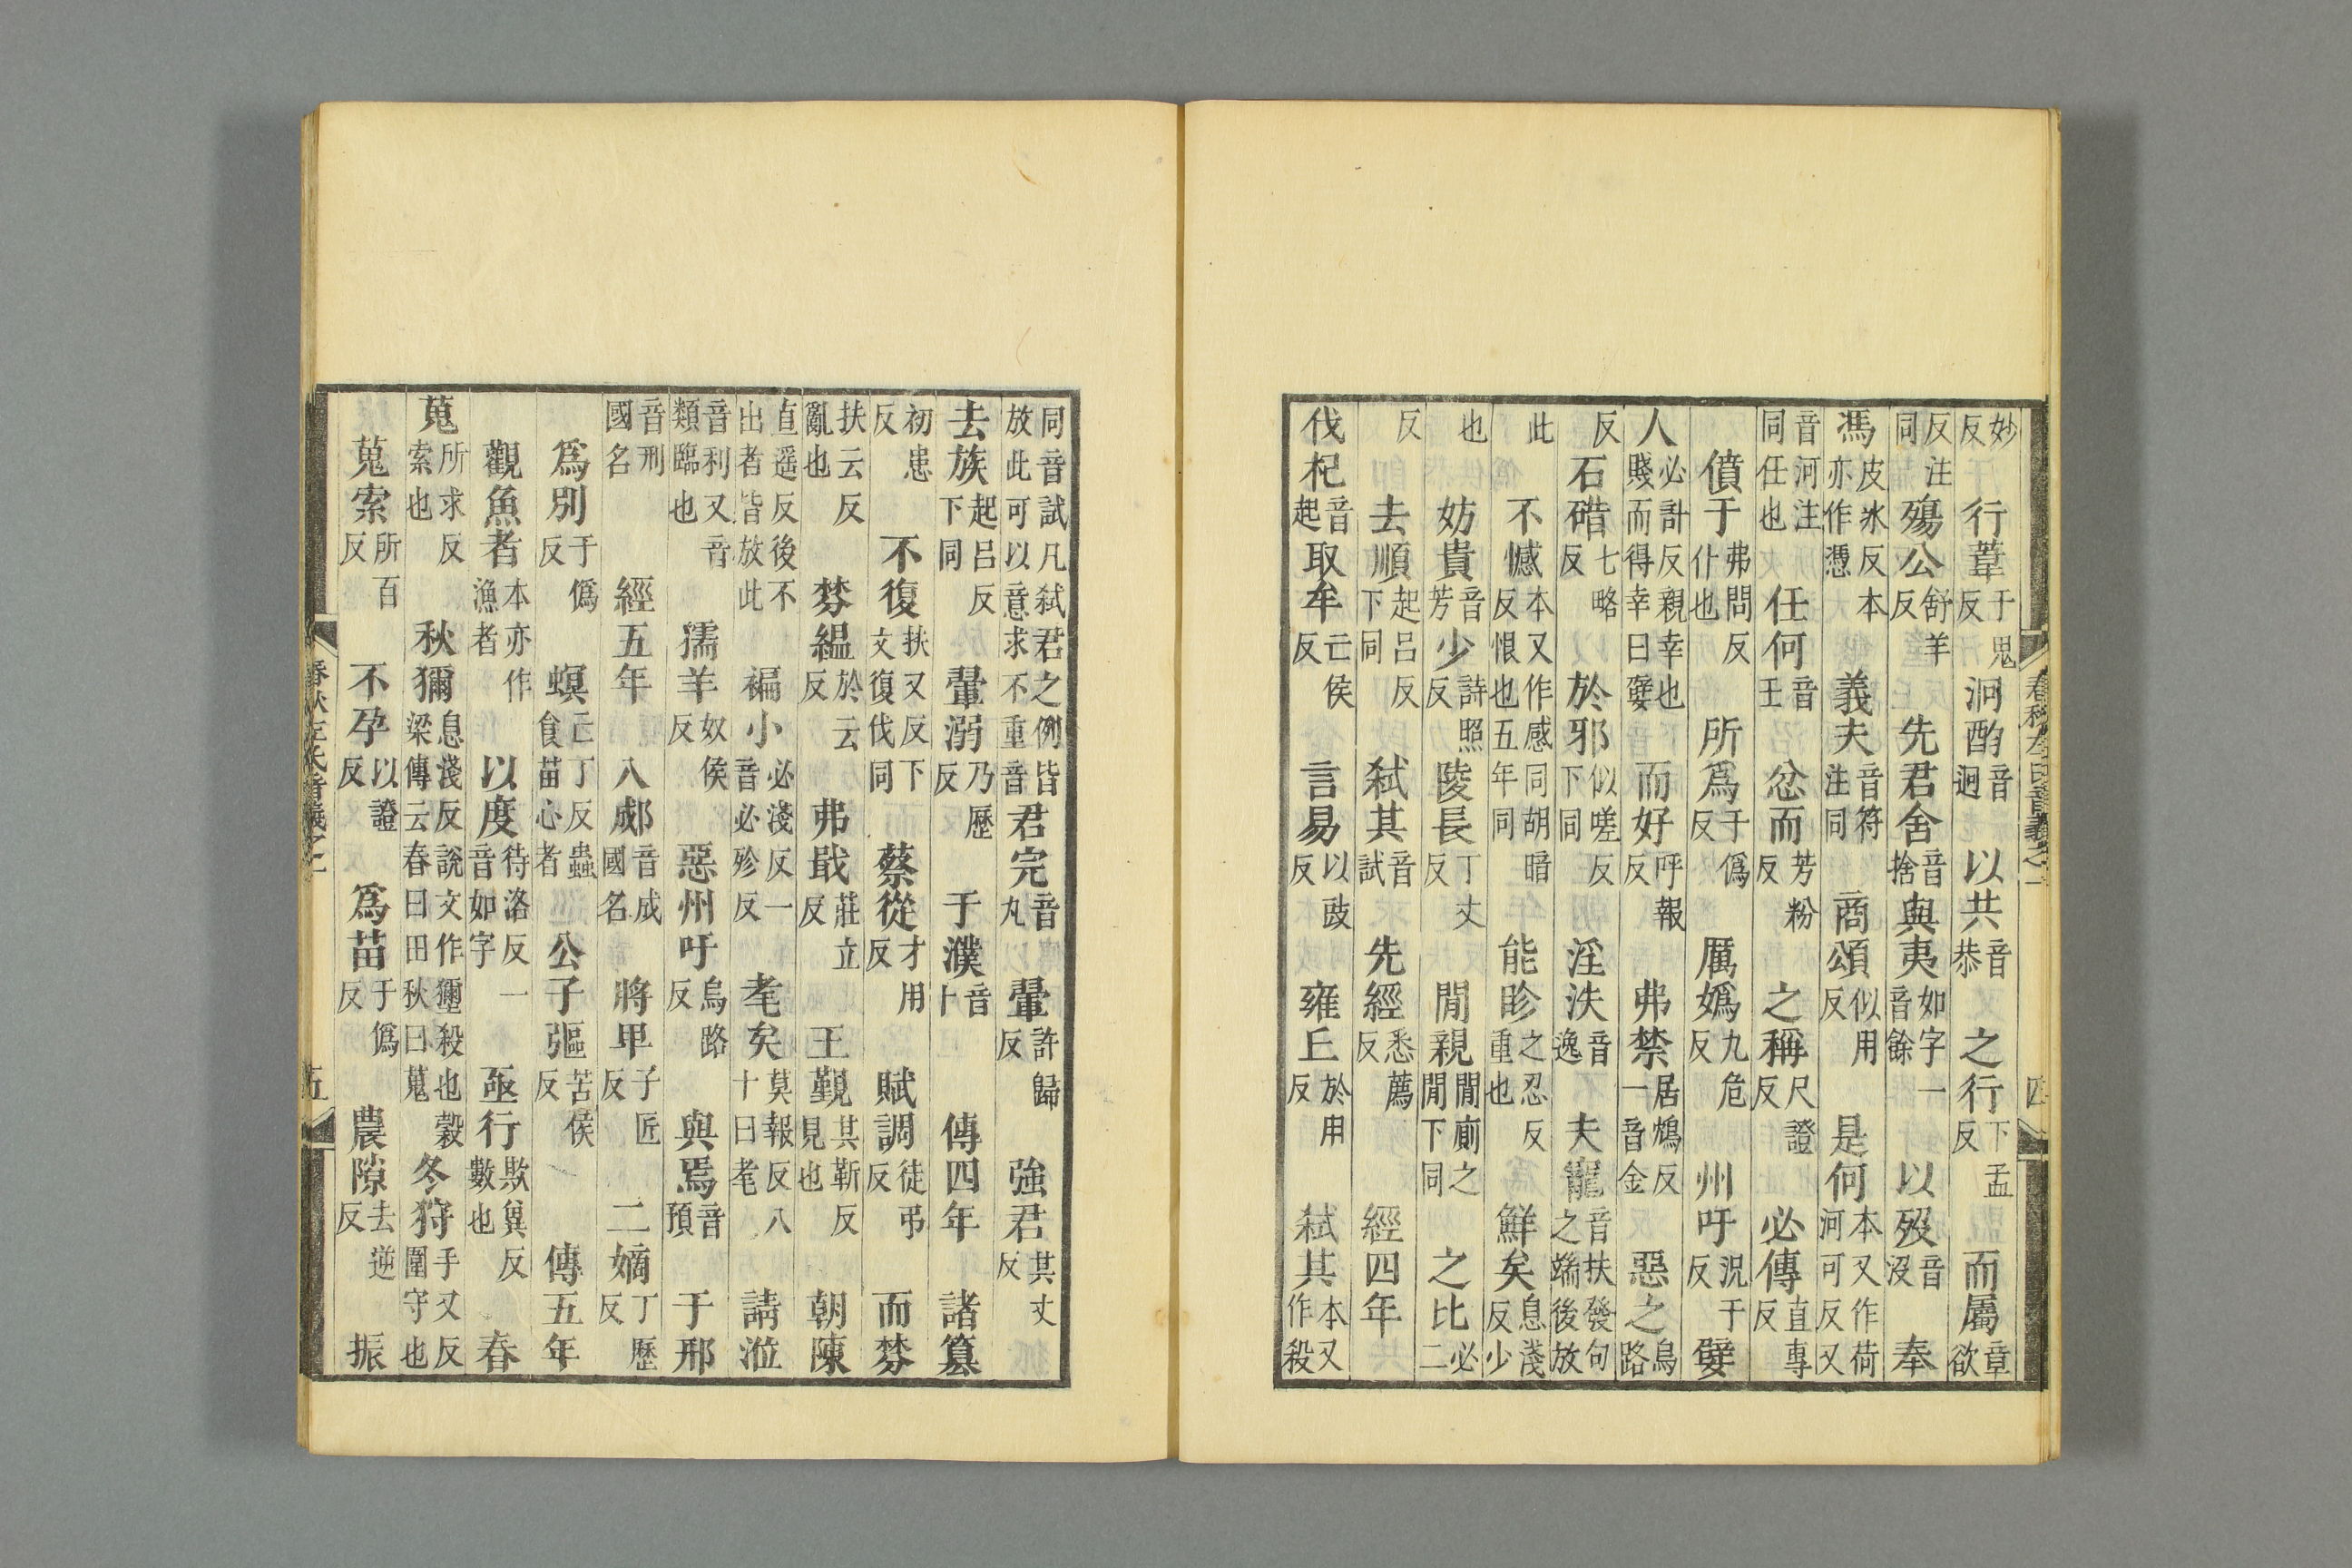 妙反行葦于鬼反泂酌音迥以共音恭之行下孟反而屬章欲
反注同殤公舒羊反先君舍音捨與夷如字一音餘以歿音沒奉
馮皮冰反本亦作憑義夫音符注同商頌似用反是何本又作荷河可反又
音河注同任也任何音壬忿而芳粉反之稱尺證反必傳直專反
僨于弗問反仆也所爲于僞反厲嬀九危反州吁況于反嬖
人必計反親幸也賤而得幸曰嬖而好呼報反弗禁居鴆反一音金惡之烏路
反石碏七略反於邪似嗟反下同淫泆音逸夫寵音扶發句之端後放
此不憾本又作感同胡暗反恨也五年同能眕之忍反重也鮮矣息淺反少
也妨貴音芳少詩照反陵長丁丈反閒親閒廁之閒下同之比必二
反去順起呂反下同弑其音試先經悉薦反經四年
伐杞音起取牟亡侯反言易以豉反雍丘於用反弑其本又作殺
春秋左氏音義之一 四
同音試凡弑君之例皆放此可以意求不重音君完音丸翬許歸反強君其丈反
去族起呂反下同翬溺乃歷反于濮音卜傳四年諸篡
初患反不復扶又反下文復伐同蔡從才用反賦調徒弔反而棼
扶云反亂也棼緼於云反弗戢莊立反王覲其靳反見也朝陳
直遥反後不出者皆放此褊小必淺反一音必殄反耄矣莫報反八十曰耄請涖
音利又音類臨也獳羊奴侯反惡州吁烏路反與焉音預于邢
音刑國名經五年入郕音成國名將卑子匠反二嫡丁歷反
爲別于僞反螟亡丁反蟲食苗心者公子彄苦侯反傳五年
觀魚者本亦作漁者以度待洛反一音如字亟行欺兾反數也春
蒐所求反索也秋獮息淺反說文作𤣎殺也穀梁傳云春曰田秋曰蒐冬狩手又反圍守也
蒐索所百反不孕以證反爲苗于僞反農隙去逆反振
春秋左氏音義之一 五